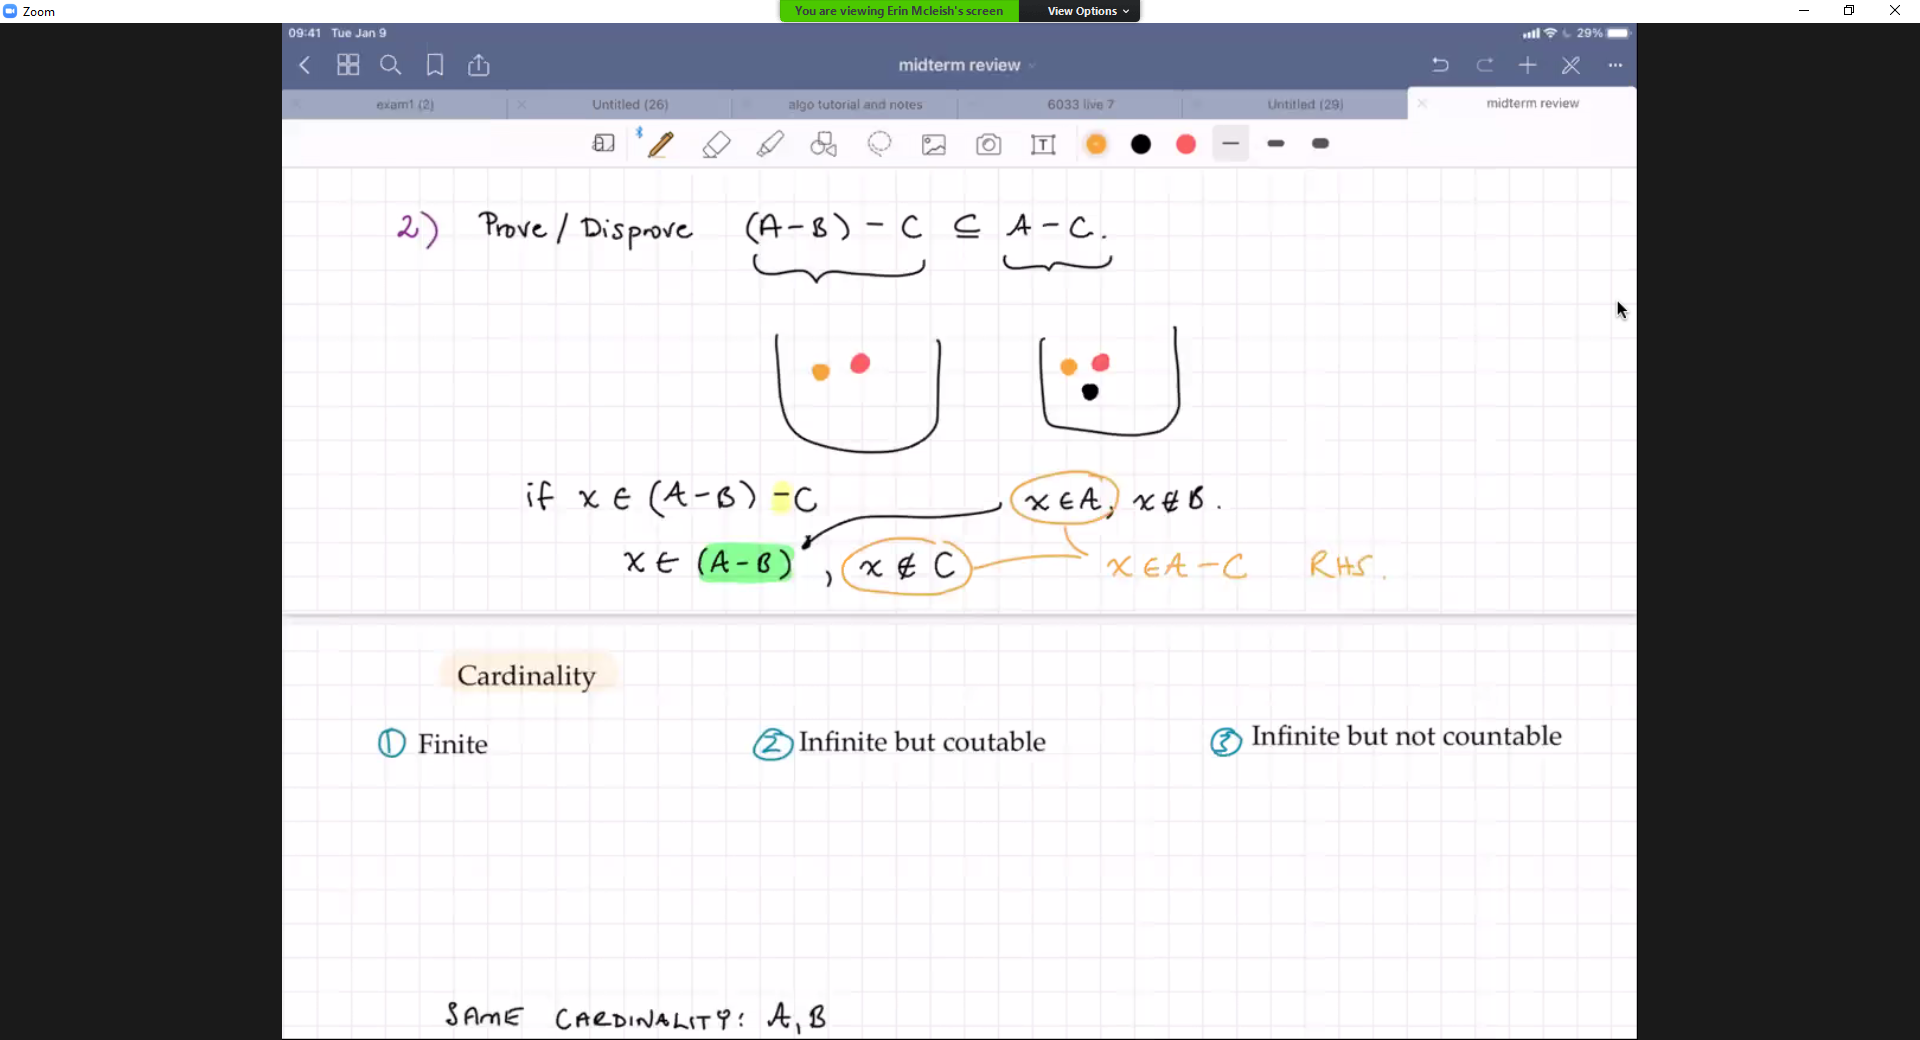 Zoom
You are viewing Erin Mcleish's screen View Options
09:41 Tue Jan 9 29%
midterm review
exam1 (2) Untitled (26) algo tutorial and notes 6033 live 7 Untitled (29) midterm review
T
2) Prove / Disprove (A-B) - C ⊆ A - C.
if x ∈ (A-B) - C x ∈ A, x ∉ B.
x ∈ (A-B), x ∉ C x ∈ A - C RHS.
Cardinality
① Finite ② Infinite but coutable ③ Infinite but not countable
SAME CARDINALITY: A, B